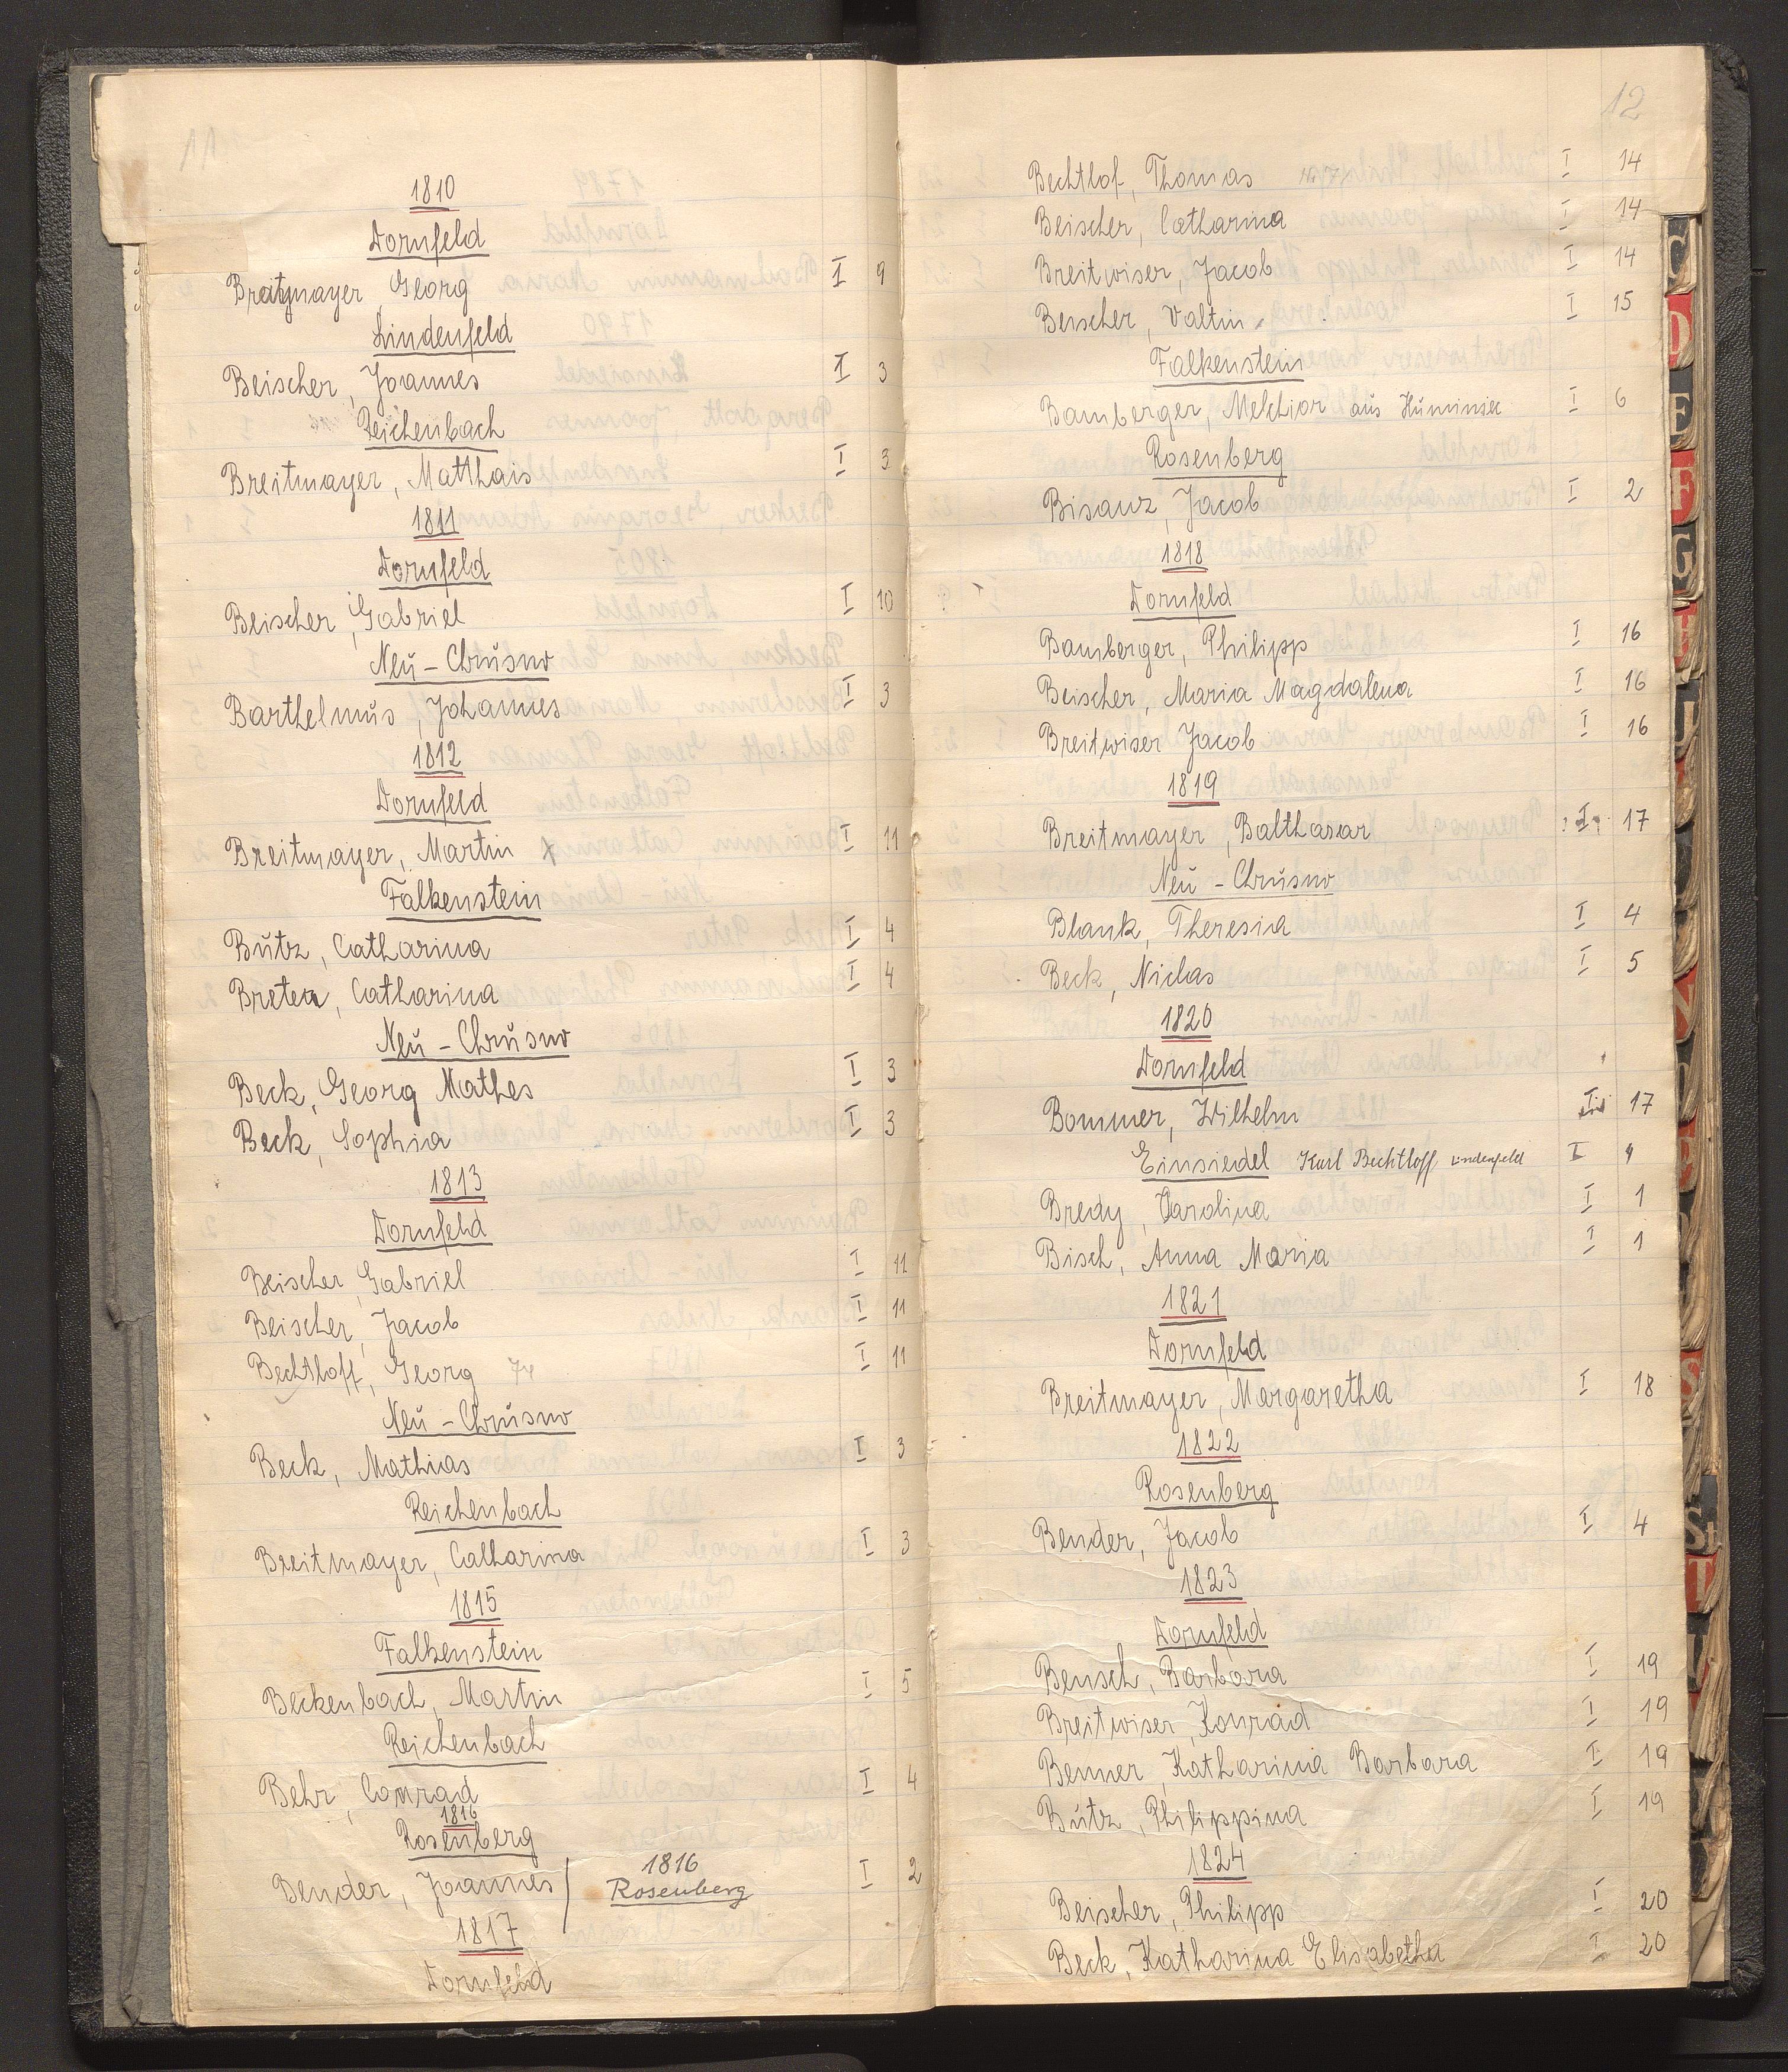 11
1810
Dornfeld
Breitmayer Georg I 9
Lindenfeld
Beischer, Joannes I 3
Reichenbach
Breitmayer, Matthais I 3
1811
Dornfeld
Beischer, Gabriel I 10
Neŭ - Chrŭsno
Barthelmŭs, Johannes I 3
1812
Dornfeld
Breitmayer, Martin x I 11
Falkenstein
Bŭtz, Catharina I 4
Breter, Catharina I 4
Neŭ - Chrŭsno
Beck, Georg Mathes I 3
Beck, Sophia I 3
1813
Dornfeld
Beischer, Gabriel I 11
Beischer, Jacob I 11
Bechtloff, Georg 74 I 11
Neŭ - Chrŭsno
Beck, Mathias I 3
Reichenbach
Breitmayer, Catharina I 3
1815
Falkenstein
Beckenbach, Martin I 5
Reichenbach
Behr, Conrad I 4
1816
Rosenberg
Bender, Joannes / 1816 Rosenberg I 2
1817
Dornfeld
12
Bechtlof, Thomas I 14
Beischer, Catharina I 14
Breitwiser, Jacob I 14
Beischer, Valtin I 15
Falkenstein
Bamberger, Melchior aŭs Hŭminiec I 6
Rosenberg
Bisanz, Jacob I 2
1818
Dornfeld
Bamberger, Philipp I 16
Beischer, Maria Magdalena I 16
Breitwiser Jacob I 16
1819
Breitmayer, Balthasar I 17
Neŭ - Chrŭsno
Blank, Theresia I 4
Beck, Niclas I 5
1820
Dornfeld
Bommer, Wilhelm I 17
Einsiedel Karl Bechtloff Lindenfeld I
Bredy, Karolina I 1
Bisch, Anna Maria I 1
1821
Dornfeld
Breitmayer, Margaretha I 18
1822
Rosenberg
Bender, Jacob I 4
1823
Dornfeld
Bensch, Barbara I 19
Breitwiser, Konrad I 19
Benner, Katharina Barbara I 19
Bŭtz, Philippina I 19
1824
Beischer, Philipp I 20
Beck, Katharina Elisabetha I 20